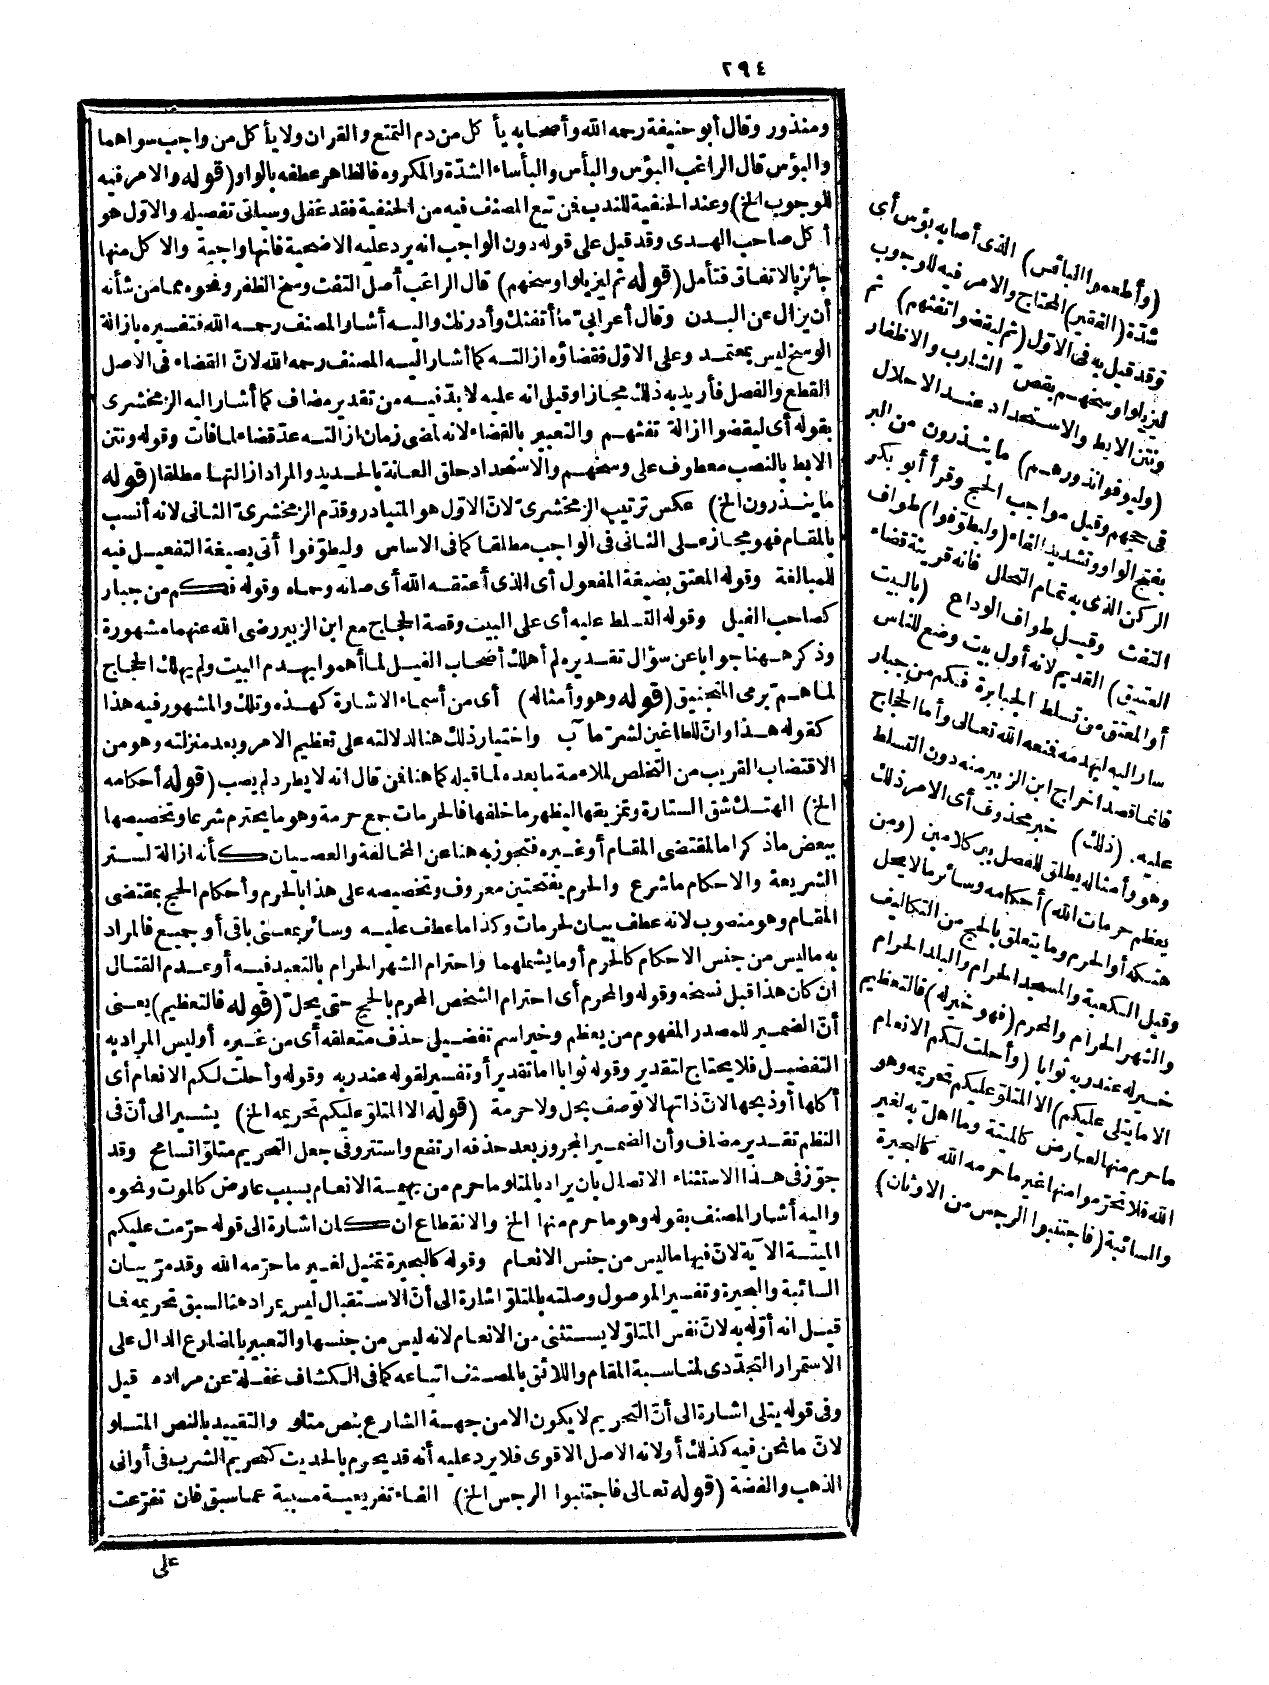 ٢٩٤
ومنذور وقال أبو حنيفة رحمه الله وأصحابه يأ كل من دم التمتع والقران ولا يأ كل من واجب سواهما
والبؤس قال الراغب البؤس والبأس والبأساء الشدّة والمكروه فالظاهر عطفه بالواو (قوله والامر فيه
للوجوب الخ) وعند الحنفية للندب فمن تبع المصنف فيه من الحنفية فقد غفل وسيأتى تفصيله والاوّل هو
أ كل صاحب الهدى وقد قيل على قوله دون الواجب انه يرد عليه الاضحية فانها واجبة والا كل منها
جائز بالاتفاق فتأمل (قوله ثم ليزيلوا وسخهم) قال الراغب أصل التفث وسخ الظفر ونحوه مما من شأنه
أن يزال عن البدن وقال أعرابىّ ما أتفثك وأدرنك واليه أشار المصنف رحمه الله فتفسيره بازالة
الوسخ ليس بمعتمد وعلى الاوّل فقضاؤه ازالته كما أشار اليه المصنف رحمه الله لانّ القضاء فى الاصل
القطع والفصل فأريد به ذلك مجازا وقيل انه عليه لا بدّ فيه من تقدير مضاف كما أشار اليه الزمخشرى
بقوله أى ليقضوا ازالة تفثهم والتعبير بالقضاء لانه لمضى زمان ازالته عدّ قضاء لما فات وقوله ونتن
الابط بالنصب معطوف على وسخهم والاستحداد حلق العانة بالحديد والمراد ازالتها مطلقا (قوله
ما ينذرون الخ) عكس ترتيب الزمخشرىّ لانّ الاوّل هو المتبادر وقدّم الزمخشرىّ الثانى لانه أنسب
بالمقام فهو مجاز على الثانى فى الواجب مطلقا كما فى الاساس وليطوّفوا أتى بصيغة التفعيل فيه
للمبالغة وقوله المعتق بصيغة المفعول أى الذى أعتقه الله أى صانه وحماه وقوله فكم من جبار
كصاحب الفيل وقوله التسلط عليه أى على البيت وقصة الحجاج مع ابن الزبير رضى الله عنهما مشهورة
وذكر ههنا جوابا عن سؤال تقديره لم أهلك أصحاب الفيل لما أهموا بهدم البيت ولم يهلك الحجاج
لما همّ برمى المنجنيق (قوله وهو وأمثاله) أى من أسماء الاشارة كهذه وتلك والمشهور فيه هذا
كقوله هذا وانّ للطاغين لشرّ مآب واختيار ذلك هنا لدلالته على تعظيم الامر وبعد منزلته وهو من
الاقتضاب القريب من التخلص لملاءمة ما بعده لما قبله كما هنا فمن قال انه لا يطرد لم يصب (قوله أحكامه
الخ) الهتك شق الستارة وتمزيقها ليظهر ما خلفها فالحرمات جمع حرمة وهو ما يحترم شرعا وتخصيصها
ببعض ما ذكر اما لمقتضى المقام أو غيره فتجوز به هنا عن المخالفة والعصيان كأنه ازالة لستر
الشريعة والاحكام ما شرع والحرم بفتحتين معروف وتخصيصه على هذا بالحرم وأحكام الحج بمقتضى
المقام وهو منصوب لانه عطف بيان لحرمات وكذا ما عطف عليه وسائر بمعنى باقى أو جميع فالمراد
به ما ليس من جنس الاحكام كالحرم أو ما يشملهما واحترام الشهر الحرام بالتعبد فيه أو عدم القتال
ان كان هذا قبل نسخه وقوله والمحرم أى احترام الشخص المحرم بالحج حتى يحلّ (قوله فالتعظيم) يعنى
أنّ الضمير للمصدر المفهوم من يعظم وخير اسم تفضيل حذف متعلقه أى من غيره أو ليس المراد به
التفضيل فلا يحتاج لتقدير وقوله ثوابا اما تقدير أو تفسير لقوله عند ربه وقوله وأحلت لكم الانعام أى
أكلها أو ذبحها لانّ ذاتها لا توصف بحل ولا حرمة (قوله الا المتلوّ عليكم تحريمه الخ) يشير الى أنّ فى
النظم تقدير مضاف وأن الضمير المجرور بعد حذفه ارتفع واستتر وفى جعل التحريم متلوّا تسامح وقد
جوّز فى هذا الاستثناء الاتصال بأن يراد بالمتلو ما حرم من بهيمة الانعام بسبب عارض كالموت ونحوه
واليه أشار المصنف بقوله وهو ما حرم منها الخ والانقطاع ان كان اشارة الى قوله حرّمت عليكم
الميتة الآية لانّ فيها ما ليس من جنس الانعام وقوله كالبحيرة تمثيل لغير ما حرّمه الله وقد مرّ بيان
السائبة والبحيرة وتفسير الموصول وصلته بالمتلوّ اشارة الى أنّ الاستقبال ليس بمراد هنا لسبق تحريمه فما
قيل انه أوّله به لانّ نفس المتلوّ لا يستثنى من الانعام لانه ليس من جنسها والتعبير بالمضارع الدال على
الاستمرار التجدّدى لمناسبة المقام واللائق بالمصنف اتباعه كما فى الكشاف غفلة عن مراده قيل
وفى قوله يتلى اشارة الى أنّ التحريم لا يكون الا من جهة الشارع بنص متلو والتقييد بالنص المتلو
لانّ ما نحن فيه كذلك أو لانه الاصل الاقوى فلا يرد عليه أنه قد يحرم بالحديث كتحريم الشرب فى أوانى
الذهب والفضة (قوله تعالى فاجتنبوا الرجس الخ) الفاء تفريعية مسببة عما سبق فان تفرّعت
على
(وأطعموا البائس) الذى أصابه بؤس أى
شدّة (الفقير) المحتاج والامر فيه للوجوب
وقد قيل به فى الاوّل (ثم ليقضوا تفثهم) ثم
ليزيلوا وسخهم بقص الشارب والاظفار
ونتن الابط والاستحداد عند الاحلال
(وليوفوا نذورهم) ما ينذرون من البر
فى حجهم وقيل مواجب الحج وقرأ أبو بكر
بفتح الواو وتشديد الفاء (وليطوّفوا) طواف
الركن الذى به تمام التحلل فانه قرينة قضاء
التفث وقيل طواف الوداع (بالبيت
العتيق) القديم لانه أول بيت وضع للناس
أو المعتق من تسلط الجبابرة فكم من جبار
سار اليه ليهدمه فمنعه الله تعالى وأما الحجاج
فانما قصد اخراج ابن الزبير منه دون التسلط
عليه. (ذلك) خبر محذوف أى الامر ذلك
وهو وأمثاله يطلق للفصل بين كلامين (ومن
يعظم حرمات الله) أحكامه وسائر ما لا يحل
هتكه أو الحرم وما يتعلق بالحج من التكاليف
وقيل الكعبة والمسجد الحرام والبلد الحرام
والشهر الحرام والمحرم (فهو خير له) فالتعظيم
خير له عند ربه ثوابا (وأحلت لكم الانعام
الا ما يتلى عليكم) الا المتلوّ عليكم تحريمه وهو
ما حرم منها لعارض كالميتة وما أهلّ به لغير
الله فلا تحرّموا منها غير ما حرمه الله كالبحيرة
والسائبة (فاجتنبوا الرجس من الاوثان)